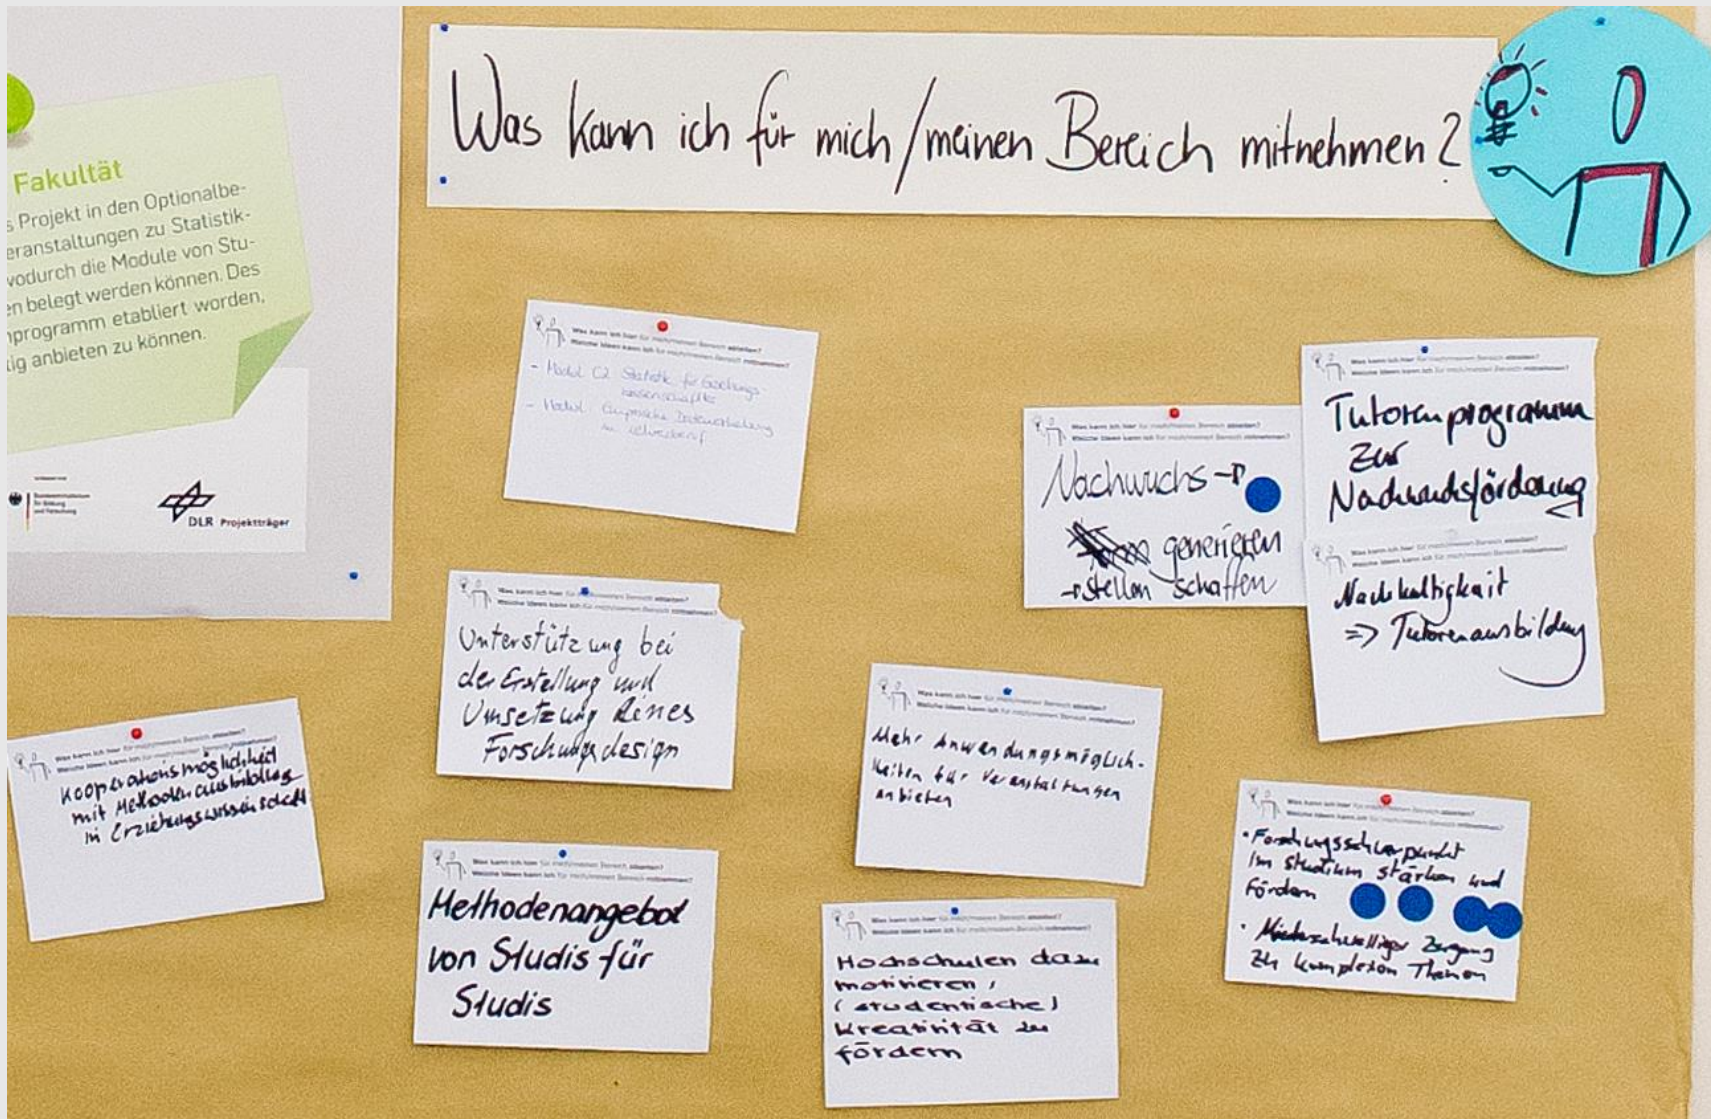 Was kann ich für mich/meinen Bereich mitnehmen?
Fakultät
s Projekt in den Optionalbe-
eranstaltungen zu Statistik-
vodurch die Module von Stu-
en belegt werden können. Des
nprogramm etabliert worden,
tig anbieten zu können.
Bundesministerium
für Bildung
und Forschung
DLR Projektträger
Was kann ich hier für mich/meinen Bereich ableiten?
Welche Ideen kann ich für mich/meinen Bereich mitnehmen?
- Modul C2 Statistik für Erziehungs-
wissenschaftler
- Modul Empirische Datenerhebung
im Lehrerberuf
Was kann ich hier für mich/meinen Bereich ableiten?
Welche Ideen kann ich für mich/meinen Bereich mitnehmen?
Nachwuchs →
generieren
→ Stellen schaffen
Was kann ich hier für mich/meinen Bereich ableiten?
Welche Ideen kann ich für mich/meinen Bereich mitnehmen?
Tutorenprogramm
zur
Nachwuchsförderung
Was kann ich hier für mich/meinen Bereich ableiten?
Welche Ideen kann ich für mich/meinen Bereich mitnehmen?
Nachhaltigkeit
=> Tutorenausbildung
Was kann ich hier für mich/meinen Bereich ableiten?
Welche Ideen kann ich für mich/meinen Bereich mitnehmen?
Unterstützung bei
der Erstellung und
Umsetzung eines
Forschungsdesign
Was kann ich hier für mich/meinen Bereich ableiten?
Welche Ideen kann ich für mich/meinen Bereich mitnehmen?
Mehr Anwendungsmöglich-
keiten für Veranstaltungen
anbieten
Was kann ich hier für mich/meinen Bereich ableiten?
Welche Ideen kann ich für mich/meinen Bereich mitnehmen?
Kooperationsmöglichkeit
mit Methodenausbildung
in Erziehungswissenschaft
Was kann ich hier für mich/meinen Bereich ableiten?
Welche Ideen kann ich für mich/meinen Bereich mitnehmen?
Methodenangebot
von Studis für
Studis
Was kann ich hier für mich/meinen Bereich ableiten?
Welche Ideen kann ich für mich/meinen Bereich mitnehmen?
Hochschulen dazu
motivieren,
(studentische)
Kreativität zu
fördern
Was kann ich hier für mich/meinen Bereich ableiten?
Welche Ideen kann ich für mich/meinen Bereich mitnehmen?
• Forschungsschwerpunkt
im Studium stärken und
fördern
• Niederschwelliger Zugang
zu komplexen Themen